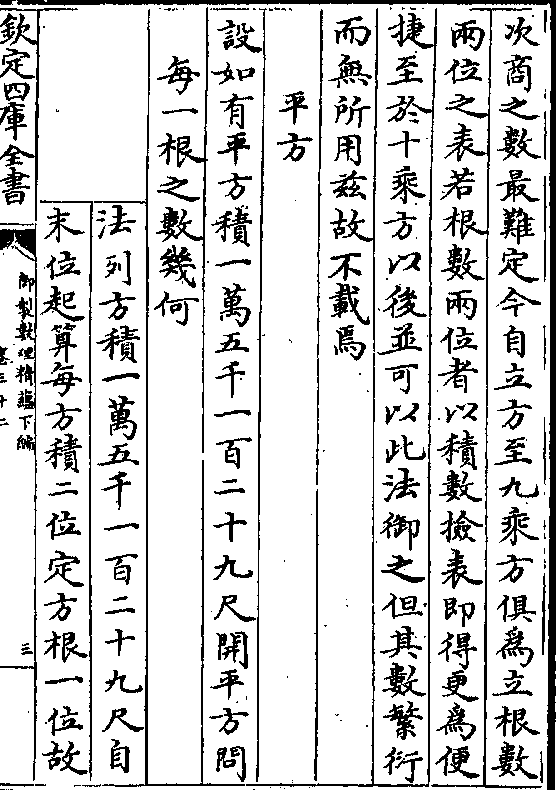 次商之數最難定今自立方至九乘方俱爲立根數
兩位之表若根數兩位者以積數撿表即得更爲便
捷至於十乘方以後並可以此法御之但其數繁衍
而無所用兹故不載焉
平方
設如有平方積一萬五千一百二十九尺開平方問
每一根之數幾何
法列方積一萬五千一百二十九尺自
末位起算每方積二位定方根一位故
欽定四庫全書
御製數理精藴下編
卷三十二
三